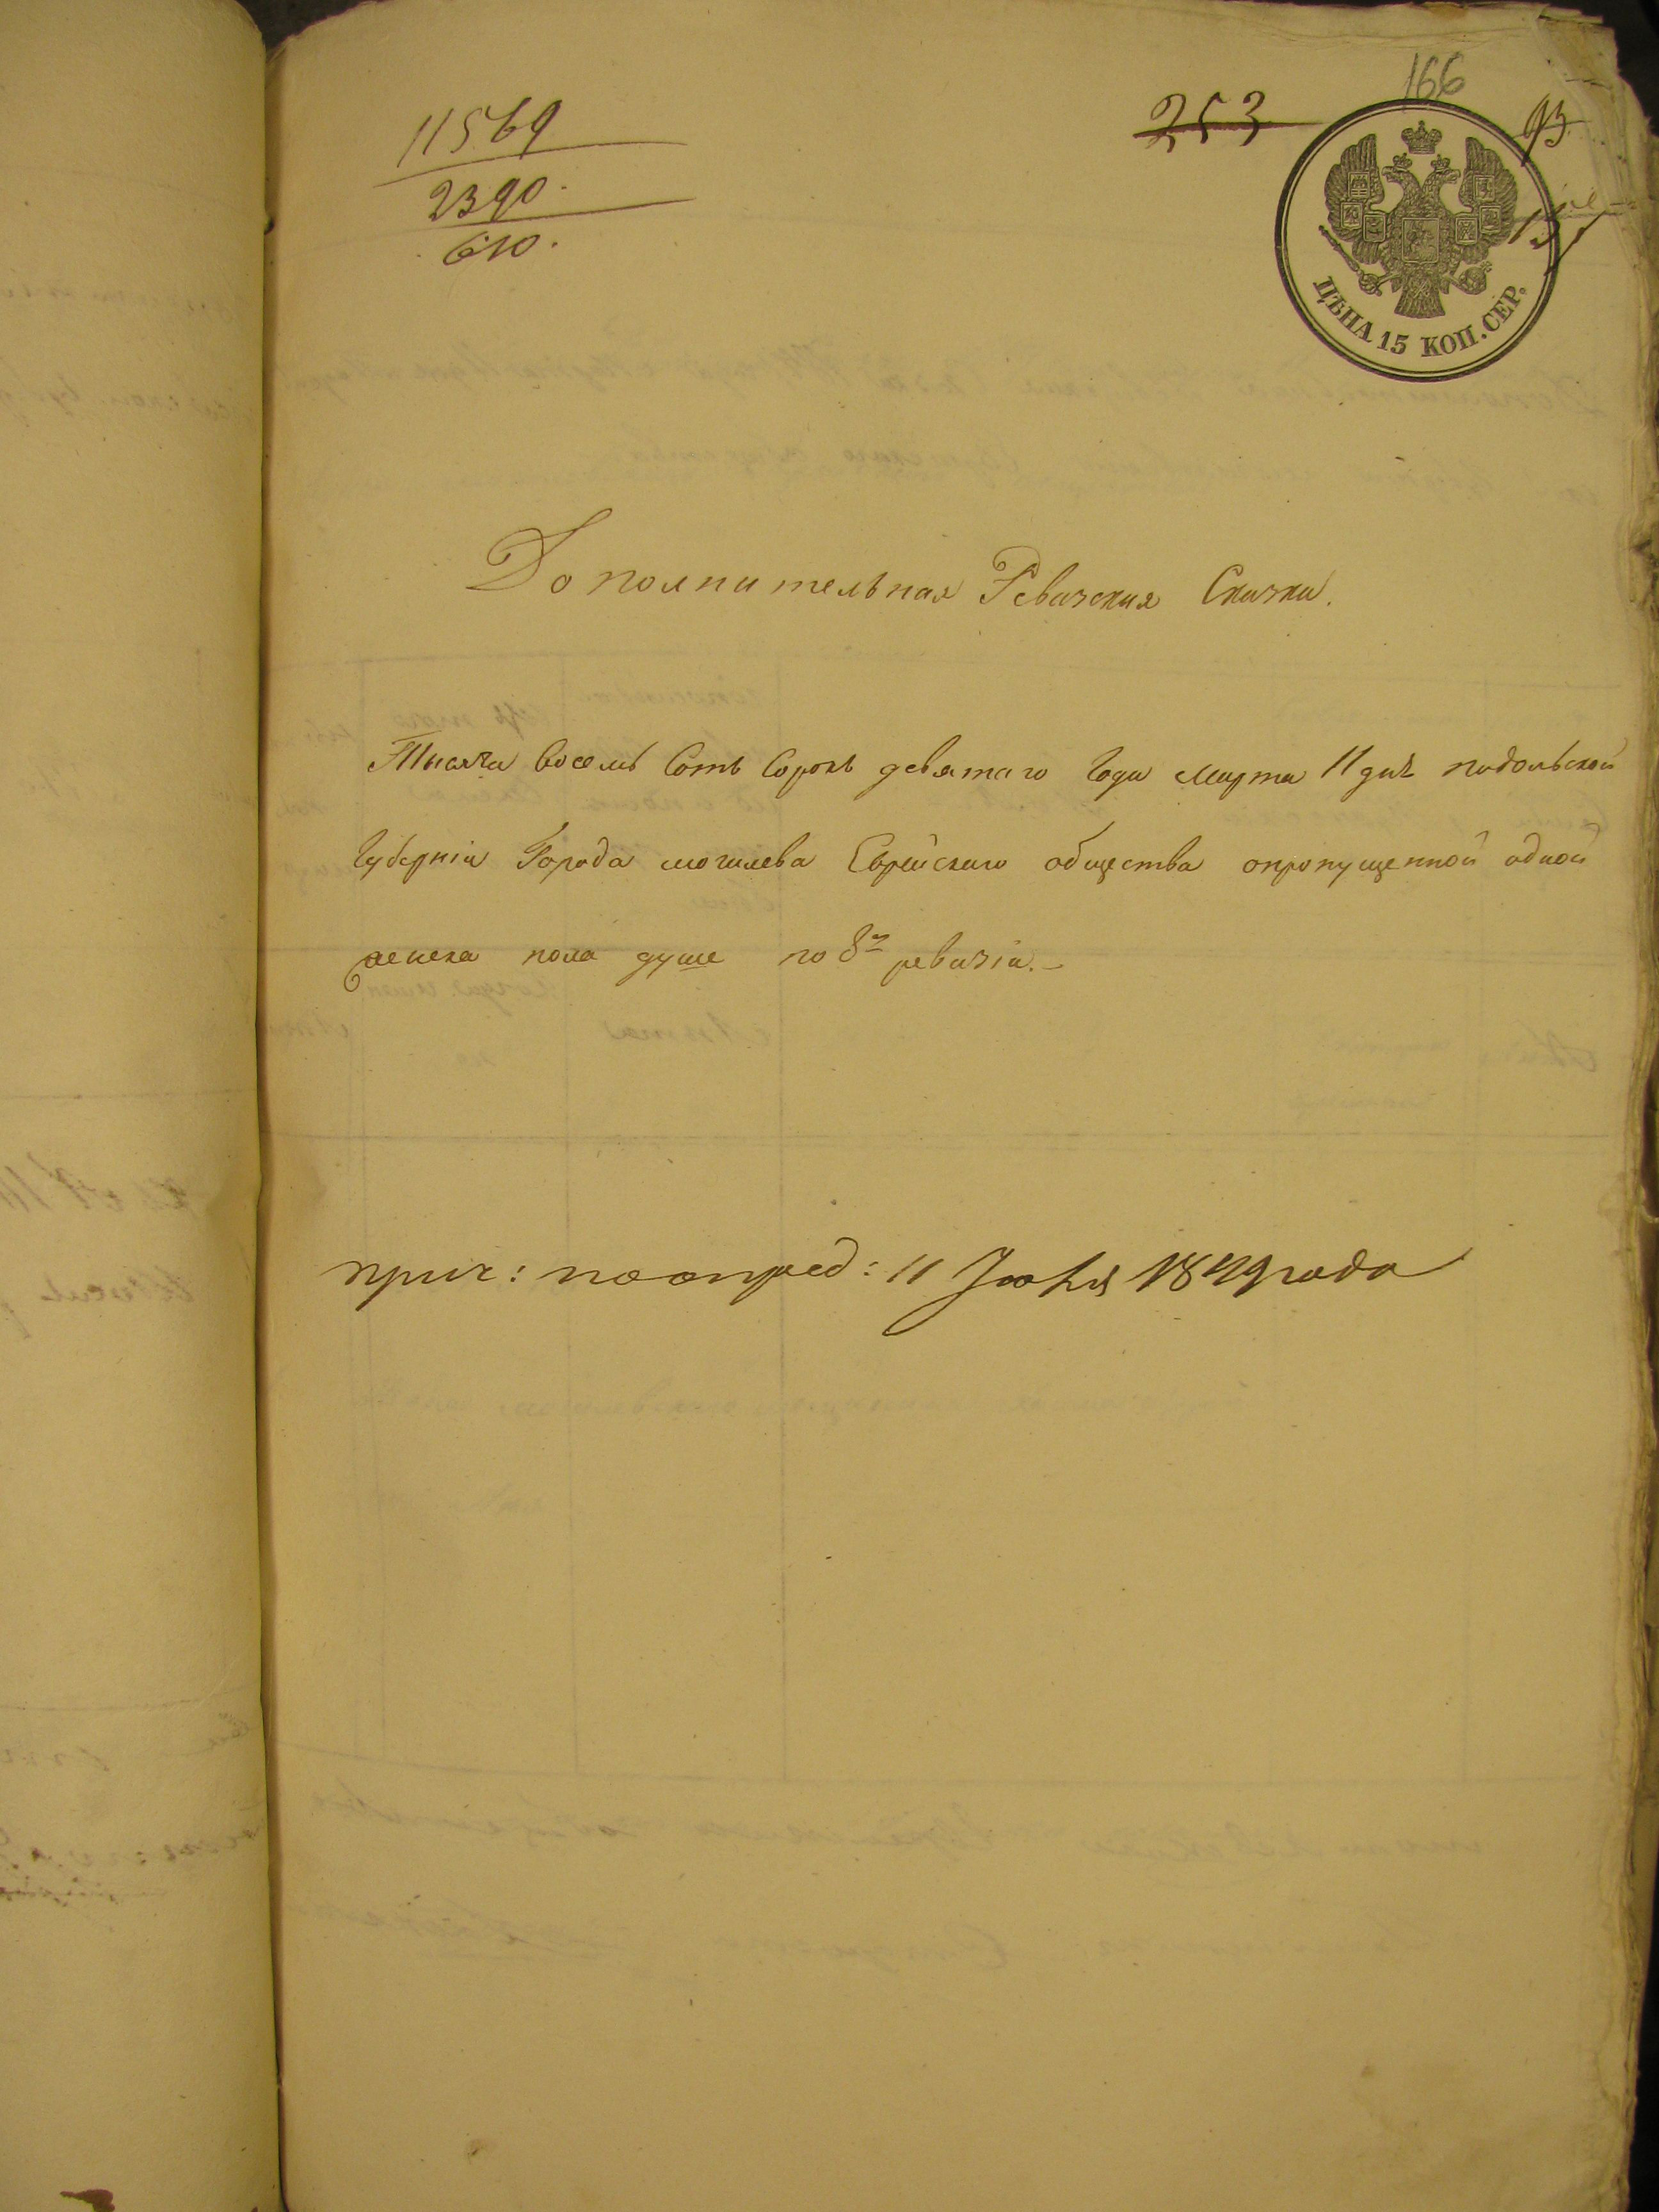 166
11569
253
93
2390.
610.
151
ЦѢНА 15 КОП. СЕР.
Дополнительная Ревизская Сказка.
Тысяча восемь сотъ сорокъ девятаго года марта 11 дня подольской
губерніи Города могилева Еврейскаго общества опропущенной одной
женска пола душе по 8й ревизіи.-
прич: по опред: 11 Іюня 1849 года